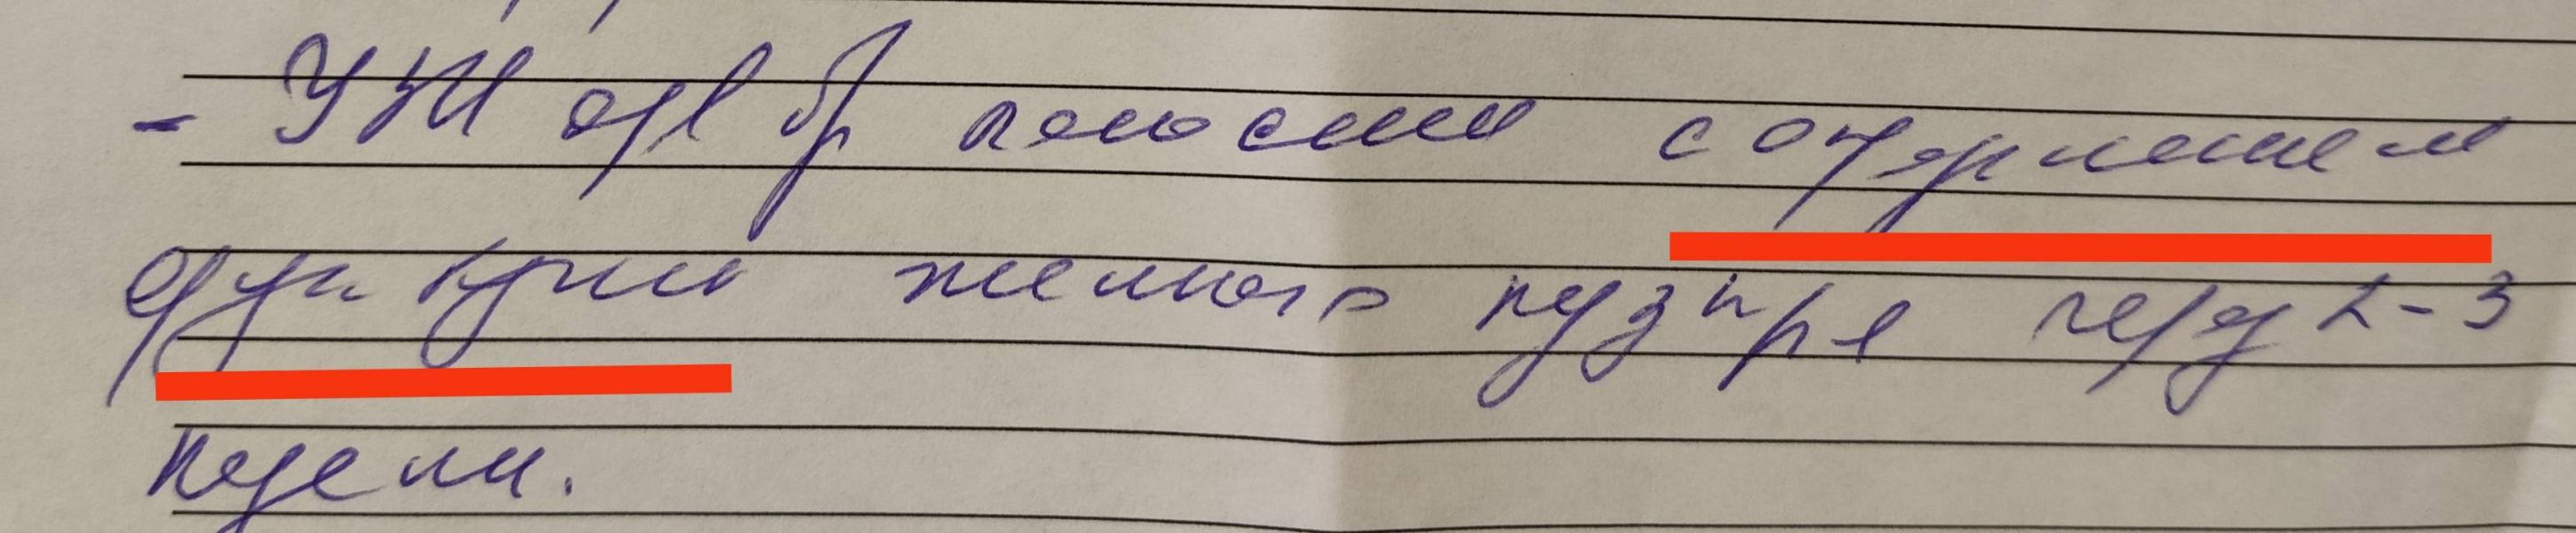 - УЗИ орг бр полости с опред
функции желчного пузыря через 2-3
недели.